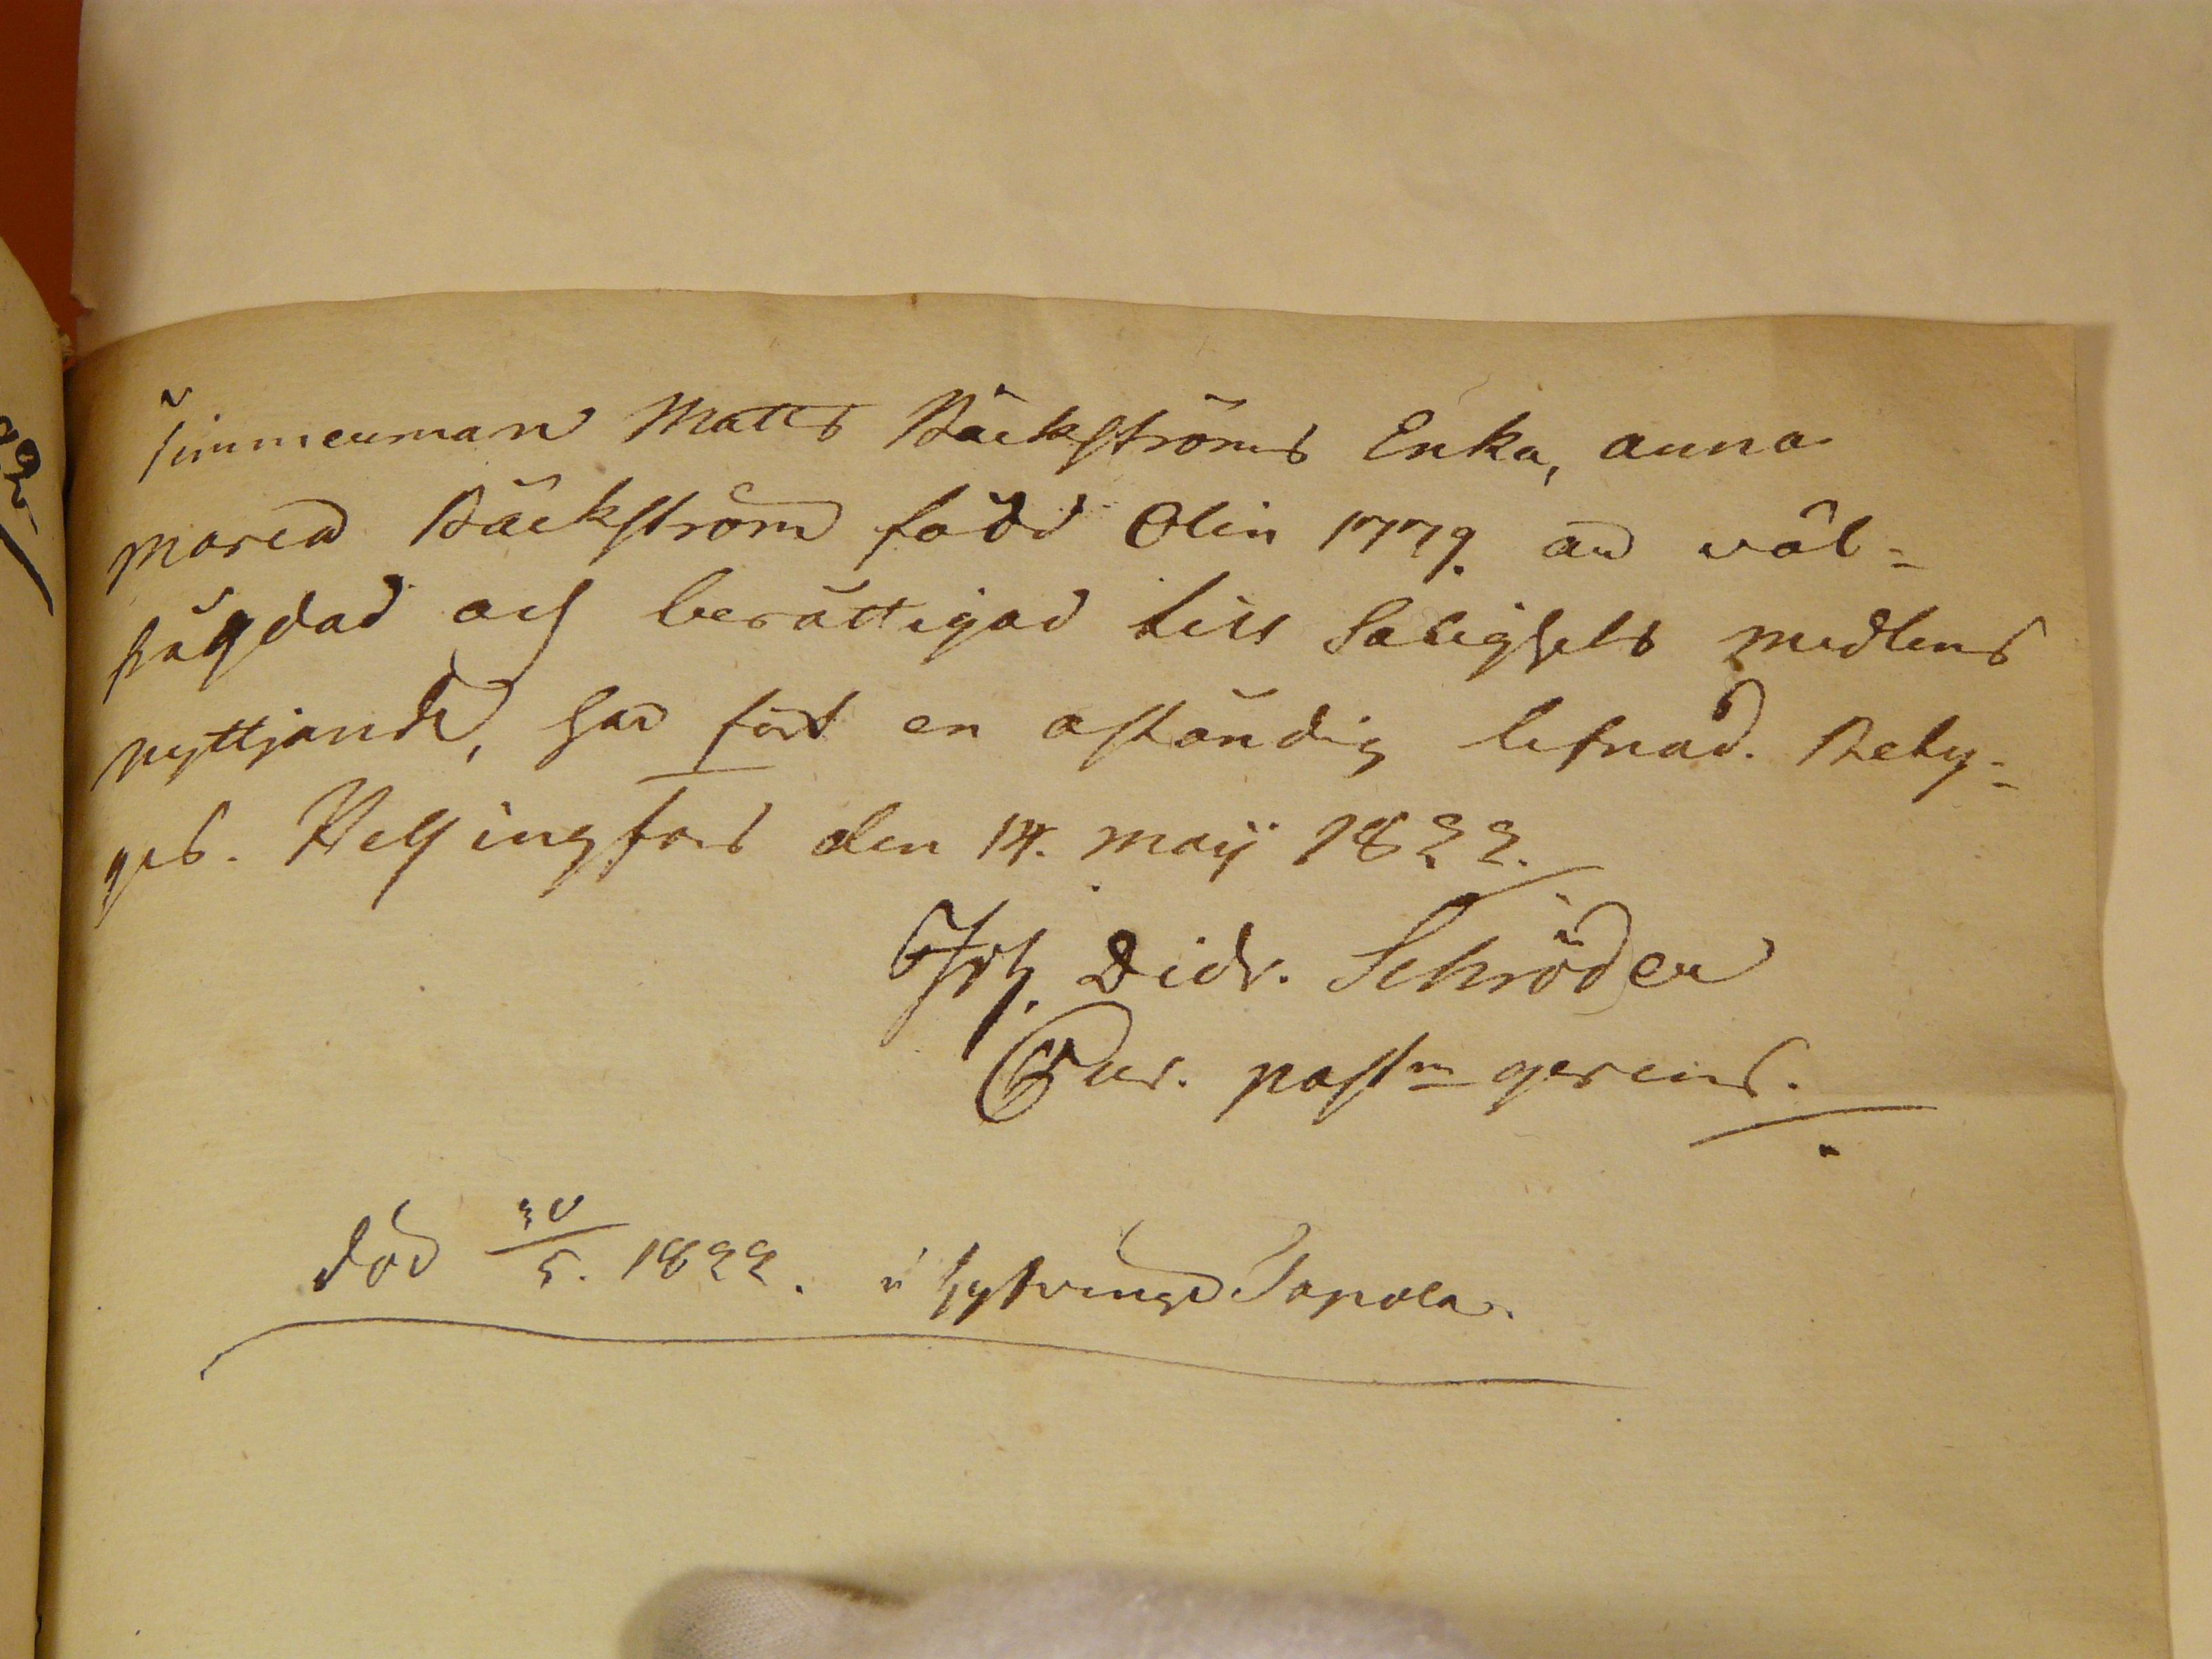 Timmerman Matts Bäckströms Enka, Anna
Maria Bäckström född Olin 1779. är väl-
frägdad och berättigad till Salighets medlens
nyttjande, har fört en anständig lefnad. Bety-
ges. Helsingfors den 14. Maij 1822.
Didr. Schröder
Cur. past:m gerens.
död 30/5. 1822. i Hyfvinge Tapola.